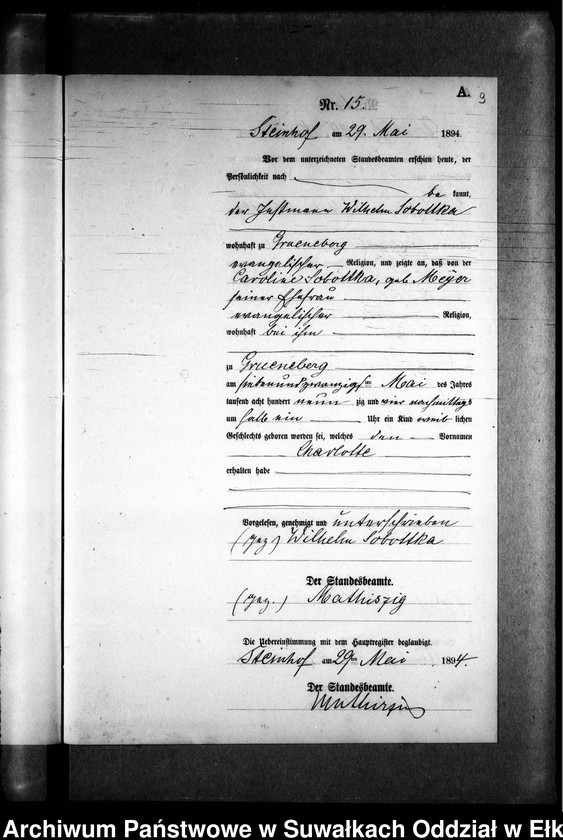 A.
9
Nr. 15.
Steinhof am 29. Mai 1894.
Vor dem unterzeichneten Standesbeamten erschien heute, der
Persönlichkeit nach
be kannt,
der Instmann Wilhelm Sobottka
wohnhaft zu Grueneberg
evangelischer Religion, und zeigte an, daß von der
Caroline Sobottka, geb. Meyer
seiner Ehefrau
evangelischer Religion,
wohnhaft bei ihm
zu Grueneberg
am siebenundzwanzigsten Mai des Jahres
tausend acht hundert neun zig und vier nachmittags
um halb ein Uhr ein Kind weib lichen
Geschlechts geboren worden sei, welches den Vornamen
Charlotte
erhalten habe
Vorgelesen, genehmigt und unterschrieben
(gez) Wilhelm Sobottka
Der Standesbeamte.
(gez.) Mathiszig
Die Uebereinstimmung mit dem Hauptregister beglaubigt.
Steinhof am 29ten Mai 1894.
Der Standesbeamte.
Mathiszig
Archiwum Państwowe w Suwałkach Oddział w Ełk